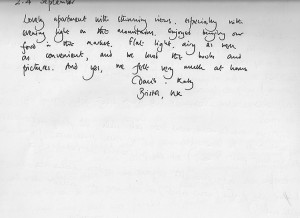 2-4 September
Lovely apartment with stunning views, especially with
evening light on the mountains. Enjoyed buying our
food in the market. Flat light, airy as well
as convenient, and we loved the books and
pictures. And yes, we felt very much at home
David + 
Bristol, UK